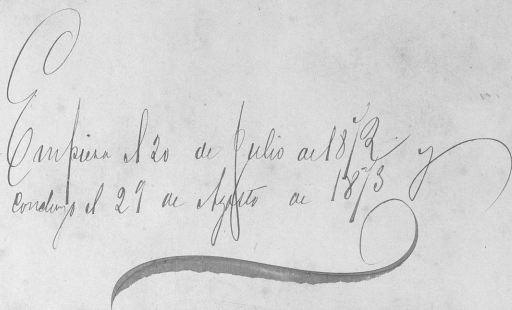 Empieza el 20 de Julio de 1872 y
concluyo el 29 de Agosto de 1873